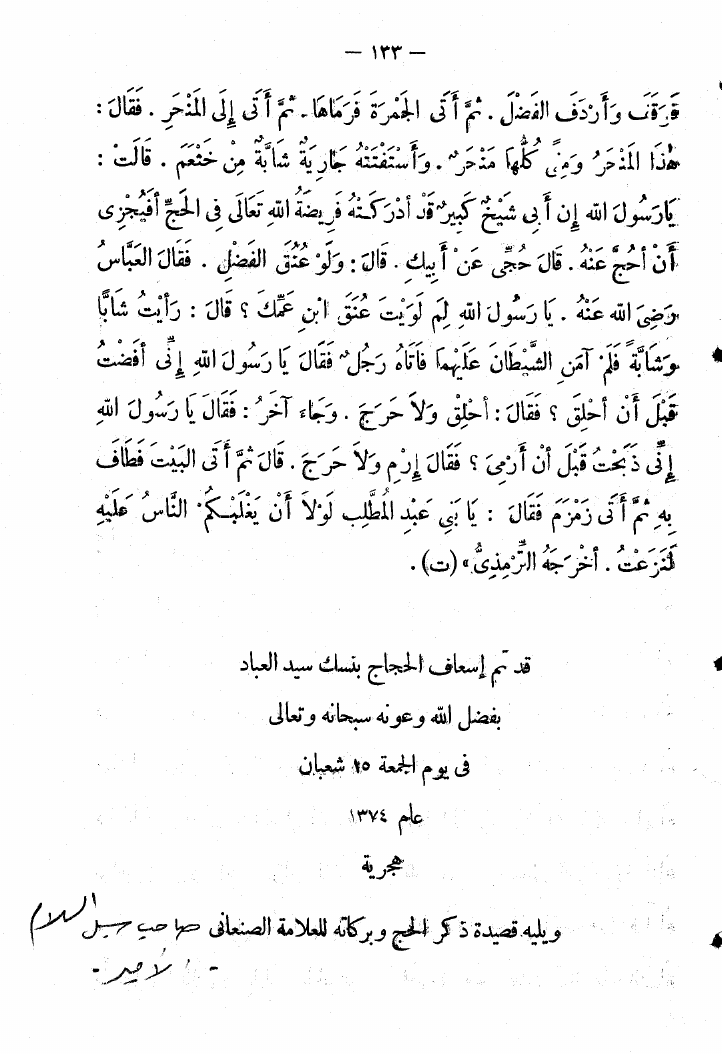 — ١٣٣ —
فَوَقَفَ وَأَرْدَفَ الفَضْلَ . ثمَّ أَتَى الجَمْرَةَ فَرَمَاهَا . ثمَّ أَتَى إِلَى المَنْحَرِ . فَقَالَ :
هٰذَا المَنْحَرُ وَمِنًى كُلُّهَا مَنْحَرٌ . وَأَسْتَفْتَتْهُ جَارِيَةٌ شَابَّةٌ مِنْ خَثْعَم . قَالَتْ :
يَارَسُولَ الله إِن أَبِى شَيْخٌ كَبِيرٌ قَدْ أدْرَكَتْهُ فَرِيضَةُ اللهِ تَعَالَى فِى الحَجِّ أَفَيُجْزِى
أَنْ أحُجَّ عَنْهُ . قَالَ حُجِّى عَنْ أَبِيكِ . قَالَ : وَلَوَى عُنُقَ الفَضْلِ . فَقَالَ العَبَّاسُ
رَضِىَ الله عَنْهُ . يَا رَسُولَ اللهِ لِمَ لَوَيْتَ عُنُقَ ابْنِ عَمِّكَ ؟ قَالَ : رَأَيْتُ شَابًّا
وَشَابَّةً فَلَمْ آمَنِ الشَّيْطَانَ عَلَيْهِمَا فَأَتَاهُ رَجُلٌ فَقَالَ يَا رَسُولَ اللهِ إِنِّى أَفَضْتُ
قَبْلَ أَنْ أحْلِقَ ؟ فَقَالَ : أحْلِقْ وَلاَ حَرَجَ . وَجَاءَ آخَرُ : فَقَالَ يَا رَسُولَ اللهِ
إِنِّى ذَبَحْتُ قَبْلَ أَنْ أَرْمِىَ ؟ فَقَالَ إِرْمِ وَلاَ حَرَجَ . قَالَ ثمَّ أَتَى البَيْتَ فَطَافَ
بِهِ ثمَّ أَتَى زَمْزَمَ فَقَالَ : يَا بَنِى عَبْدِ المُطَّلِب لَوْلاَ أَنْ يَغْلِبَكُمْ النَّاسُ عَلَيْهِ
لَنَزَعْتُ . أَخْرَجَهُ التِّرْمِذِىُّ» (ت) .
قد تم إسعاف الحجاج بنسك سيد العباد
بفضل الله وعونه سبحانه وتعالى
فى يوم الجمعة ١٥ شعبان
عام ١٣٧٤
هجرية
ويليه قصيدة ذكر الحج وبركاته للعلامة الصنعانى صاحب سبل السلام
- الأمير -